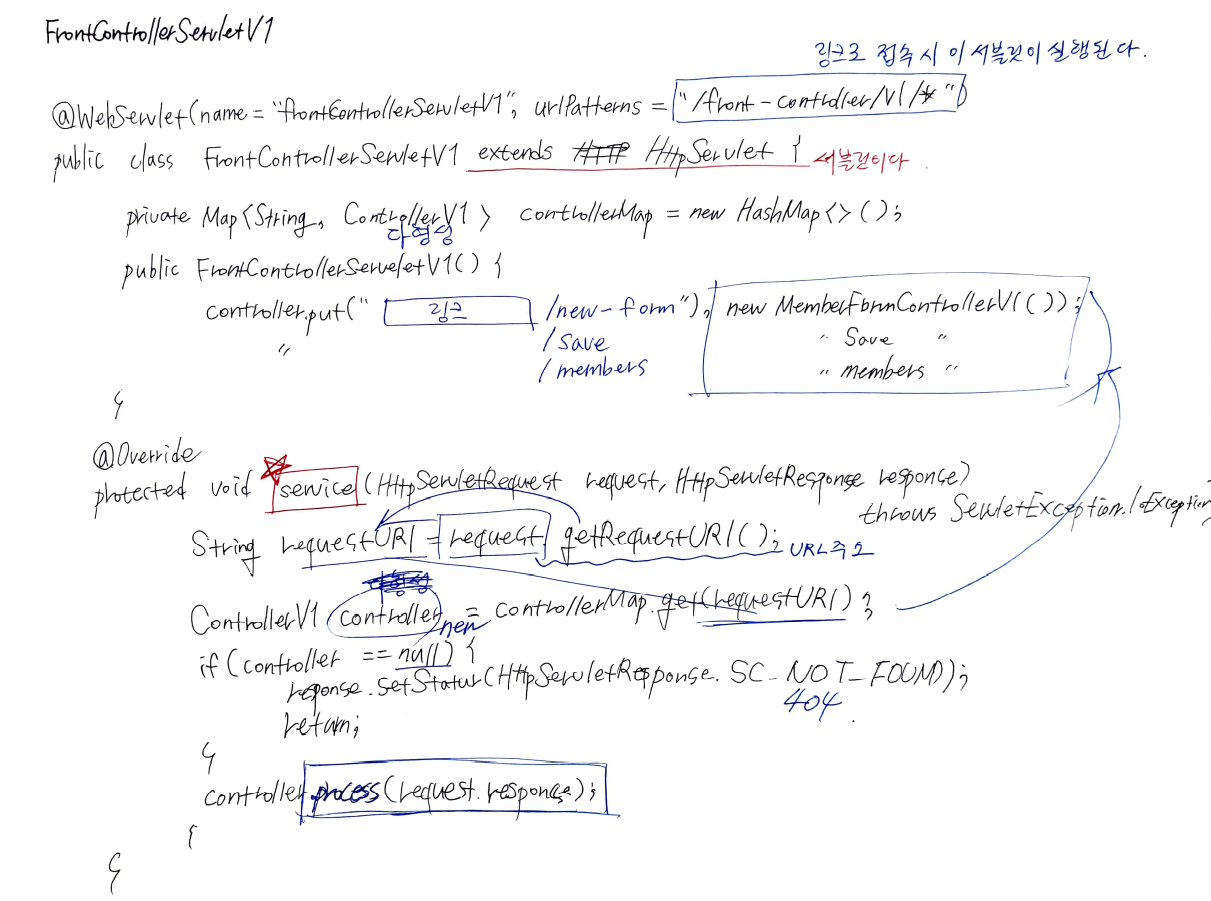 FrontControllerServletV1
링크로 접속 시 이 서블릿이 실행된다.
@WebServlet(name = "frontControllerServletV1", urlPatterns = "/front-controller/v1/*")
public class FrontControllerServletV1 extends HTTP HttpServlet {
서블릿이다
private Map<String, ControllerV1> controllerMap = new HashMap<>();
다형성
public FrontControllerServeletV1() {
controller.put(" 링크 /new-form"), new MemberFormControllerV1());
" /save " Save "
/members " members "
}
@Override
protected void service (HttpServletRequest request, HttpServletResponse response)
throws ServletException, IoException
String requestURI = request. getRequestURI(); URL주소
ControllerV1 controller = controllerMap.get(requestURI);
new
if (controller == null) {
reponse.setStatus(HttpServletResponse.SC_NOT_FOUND);
404
return;
}
controller.process(request.response);
}
}